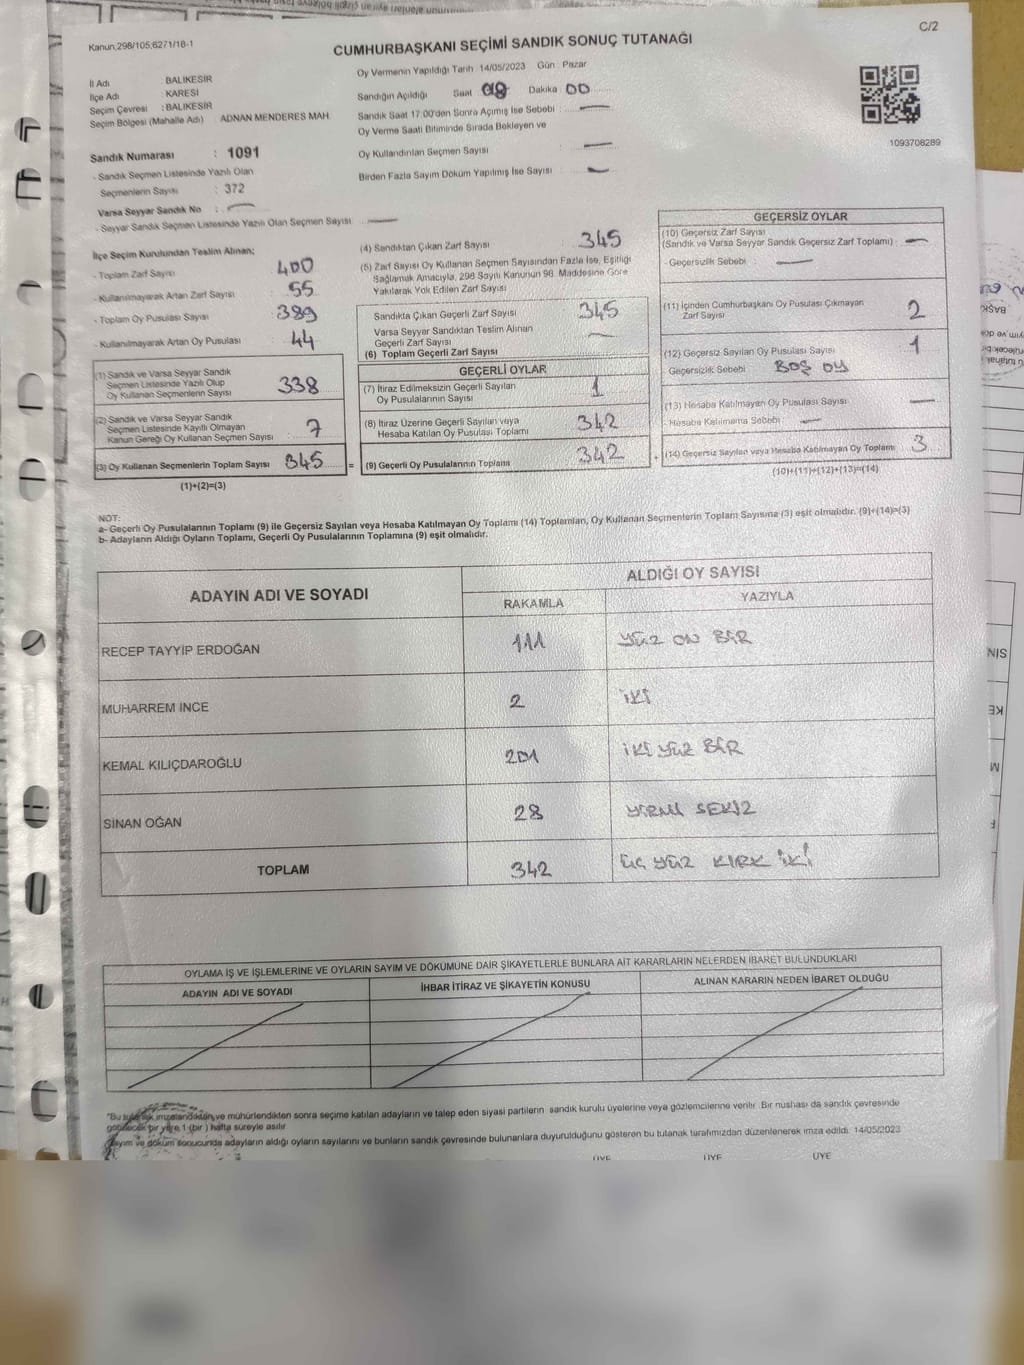 C/2
Kanun,298/105,6271/18-1
CUMHURBAŞKANI SEÇİMİ SANDIK SONUÇ TUTANAĞI
İl Adı : BALIKESİR
İlçe Adı : KARESİ
Seçim Çevresi : BALIKESİR
Seçim Bölgesi (Mahalle Adı) ADNAN MENDERES MAH.
Oy Vermenin Yapıldığı Tarih 14/05/2023 Gün : Pazar
Sandığın Açıldığı Saat 08 Dakika 00
Sandık Saat 17:00'den Sonra Açılmış İse Sebebi : —
Oy Verme Saati Bitiminde Sırada Bekleyen ve
Oy Kullandırılan Seçmen Sayısı —
Birden Fazla Sayım Döküm Yapılmış İse Sayısı —
1093708289
Sandık Numarası : 1091
- Sandık Seçmen Listesinde Yazılı Olan
Seçmenlerin Sayısı : 372
Varsa Seyyar Sandık No : —
- Seyyar Sandık Seçmen Listesinde Yazılı Olan Seçmen Sayısı —
İlçe Seçim Kurulundan Teslim Alınan;
- Toplam Zarf Sayısı 400
- Kullanılmayarak Artan Zarf Sayısı 55
- Toplam Oy Pusulası Sayısı 389
- Kullanılmayarak Artan Oy Pusulası 44
(1) Sandık ve Varsa Seyyar Sandık
Seçmen Listesinde Yazılı Olup
Oy Kullanan Seçmenlerin Sayısı 338
(2) Sandık ve Varsa Seyyar Sandık
Seçmen Listesinde Kayıtlı Olmayan
Kanun Gereği Oy Kullanan Seçmen Sayısı 7
(3) Oy Kullanan Seçmenlerin Toplam Sayısı 345
(1)+(2)=(3)
(4) Sandıktan Çıkan Zarf Sayısı 345
(5) Zarf Sayısı Oy Kullanan Seçmen Sayısından Fazla İse, Eşitliği
Sağlamak Amacıyla, 298 Sayılı Kanunun 98. Maddesine Göre
Yakılarak Yok Edilen Zarf Sayısı
Sandıkta Çıkan Geçerli Zarf Sayısı 345
Varsa Seyyar Sandıktan Teslim Alınan
Geçerli Zarf Sayısı —
(6) Toplam Geçerli Zarf Sayısı
GEÇERLİ OYLAR
(7) İtiraz Edilmeksizin Geçerli Sayılan
Oy Pusulalarının Sayısı 1
(8) İtiraz Üzerine Geçerli Sayılan veya
Hesaba Katılan Oy Pusulası Toplamı 342
= (9) Geçerli Oy Pusulalarının Toplamı 342
GEÇERSİZ OYLAR
(10) Geçersiz Zarf Sayısı
(Sandık ve Varsa Seyyar Sandık Geçersiz Zarf Toplamı) : —
- Geçersizlik Sebebi —
(11) İçinden Cumhurbaşkanı Oy Pusulası Çıkmayan
Zarf Sayısı 2
(12) Geçersiz Sayılan Oy Pusulası Sayısı 1
Geçersizlik Sebebi BOŞ OY
(13) Hesaba Katılmayan Oy Pusulası Sayısı —
- Hesaba Katılmama Sebebi —
+ (14) Geçersiz Sayılan veya Hesaba Katılmayan Oy Toplamı 3
(10)+(11)+(12)+(13)=(14)
NOT:
a- Geçerli Oy Pusulalarının Toplamı (9) ile Geçersiz Sayılan veya Hesaba Katılmayan Oy Toplamı (14) Toplamları, Oy Kullanan Seçmenlerin Toplam Sayısına (3) eşit olmalıdır. (9)+(14)=(3)
b- Adayların Aldığı Oyların Toplamı, Geçerli Oy Pusulalarının Toplamına (9) eşit olmalıdır.
ADAYIN ADI VE SOYADI ALDIĞI OY SAYISI
RAKAMLA YAZIYLA
RECEP TAYYİP ERDOĞAN 111 YÜZ ON BİR
MUHARREM İNCE 2 İKİ
KEMAL KILIÇDAROĞLU 201 İKİ YÜZ BİR
SİNAN OĞAN 28 YİRMİ SEKİZ
TOPLAM 342 ÜÇ YÜZ KIRK İKİ
OYLAMA İŞ VE İŞLEMLERİNE VE OYLARIN SAYIM VE DÖKÜMÜNE DAİR ŞİKAYETLERLE BUNLARA AİT KARARLARIN NELERDEN İBARET BULUNDUKLARI
ADAYIN ADI VE SOYADI İHBAR İTİRAZ VE ŞİKAYETİN KONUSU ALINAN KARARIN NEDEN İBARET OLDUĞU
"Bu tutanak imzalandıktan ve mühürlendikten sonra seçime katılan adayların ve talep eden siyasi partilerin sandık kurulu üyelerine veya gözlemcilerine verilir. Bir nüshası da sandık çevresinde
görülecek bir yere 1 (bir) hafta süreyle asılır.
Sayım ve döküm sonucunda adayların aldığı oyların sayılarını ve bunların sandık çevresinde bulunanlara duyurulduğunu gösteren bu tutanak tarafımızdan düzenlenerek imza edildi. 14/05/2023
ÜYE ÜYE ÜYE